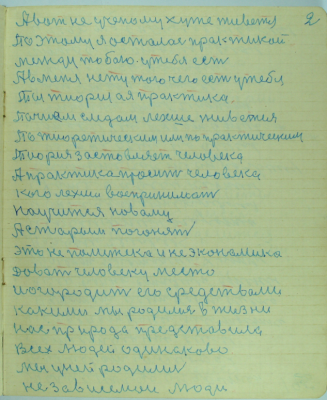 2
А вот не ученому хуже живется
Поэтому я осталас практикой
между тобою утебя ест
А в меня нету того чего ест утебя
Ты тиория а практика.
По чием следам лехше живется
По тиоретическим им по практическим
Тиория застовляет человека
А практика просит человека
кого лехши воспринимат
научится новаму
А старым погонят
это не политека и не экономика
доват человеку место
и огородит его средствами
какими мы родилис в жизни
нас природа предстовила
Всех людей одинаково
мы у ней родилис
не зависемои люди